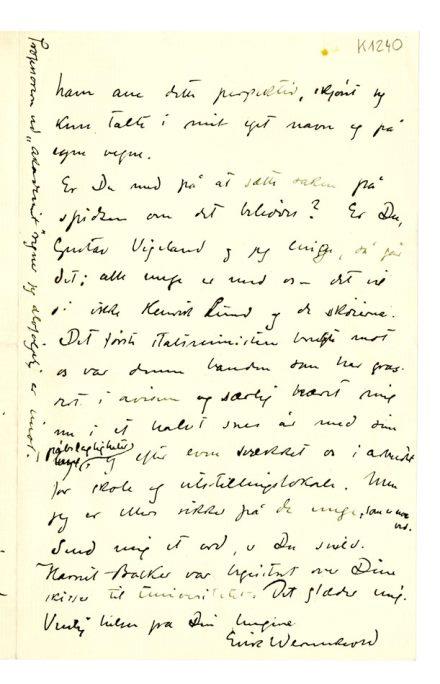 K1240
ham ane dette perspektiv, skjønt jeg
kun talte i mit eget navn og på
egne vegne.
Er Du med på at sætte saken på
spidsen om det behøves? Er Du,
Gustav Vigeland og jeg enige, så går
det; alle unge er med os – det vil
si ikke Henrik Lund og de skøierne.
Det første statsministeren brugte mot
os var denne banden som har gras-
sert i avisen og særlig beæret mig
nu i et halvt snes år med sin
og efter evne svækket os i arbeidet
for skole og utstillingslokale. Men
jeg er ellers sikker på de unge, som er noe
ved.
Send mig et ord, er Du snild.
Harriet Backer var begeistret over Dine
skisser til Universitetet. Det glæder mig.
Venlig hilsen fra Din hengivne
Erik Werenskiold
Professoren ved "akademiet" regner jeg er imot.